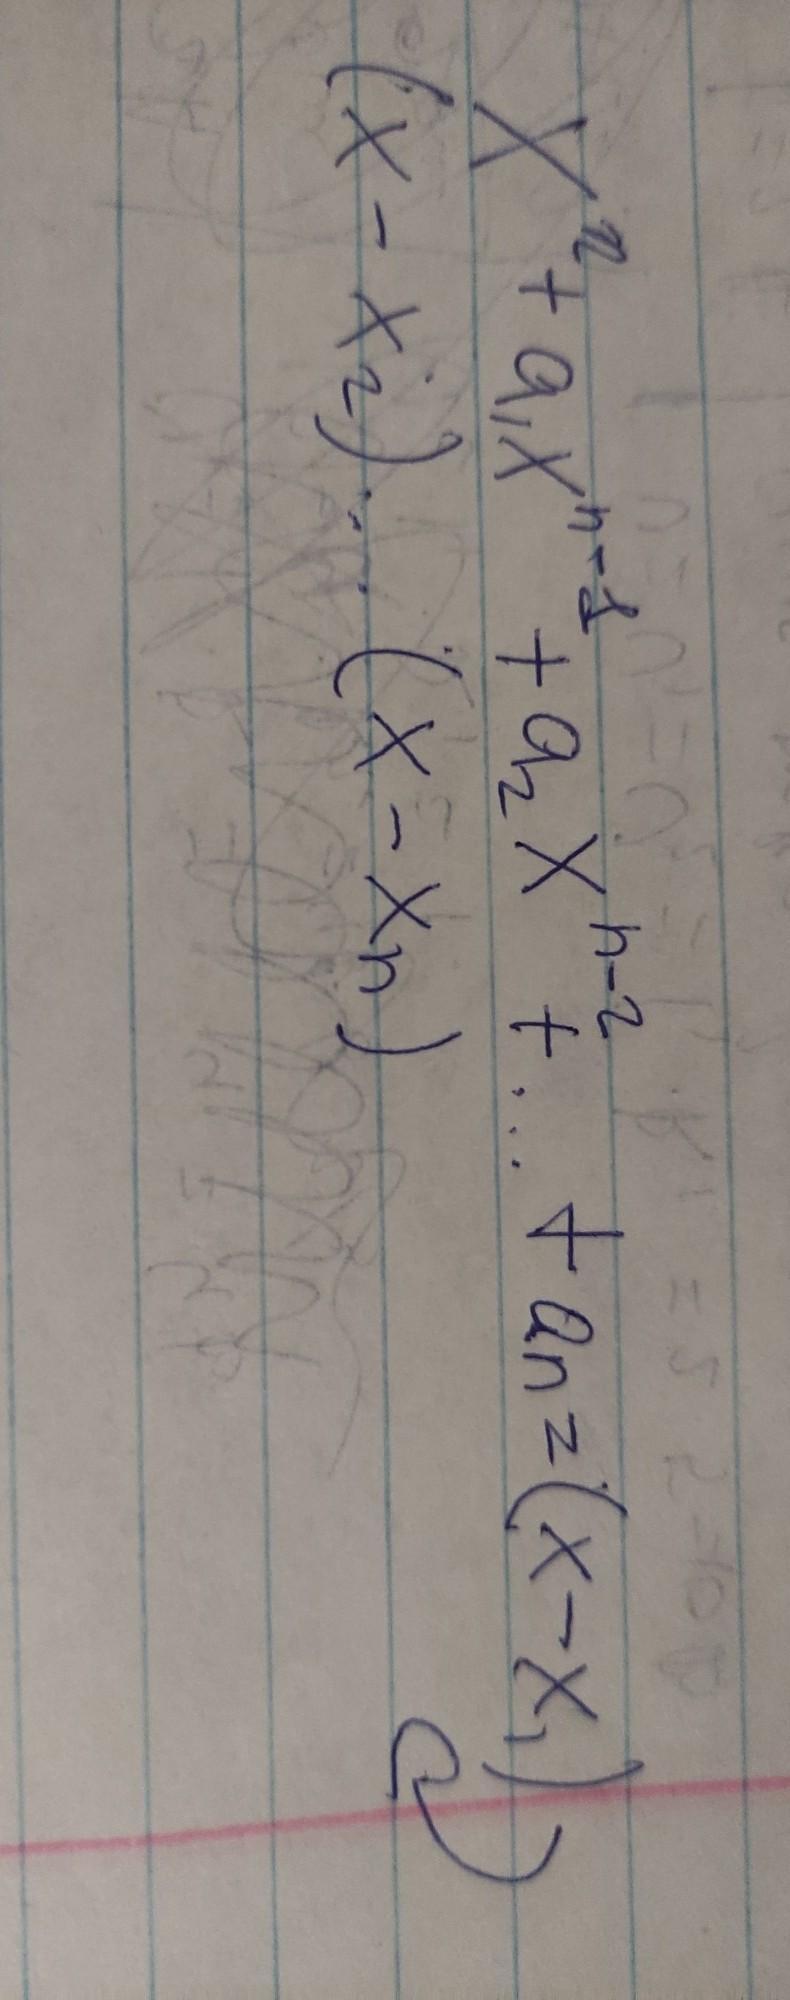 x² + a₁xⁿ⁻¹ + a₂xⁿ⁻² + ... + aₙ = (x - x₁)
(x - x₂) ... (x - xₙ)